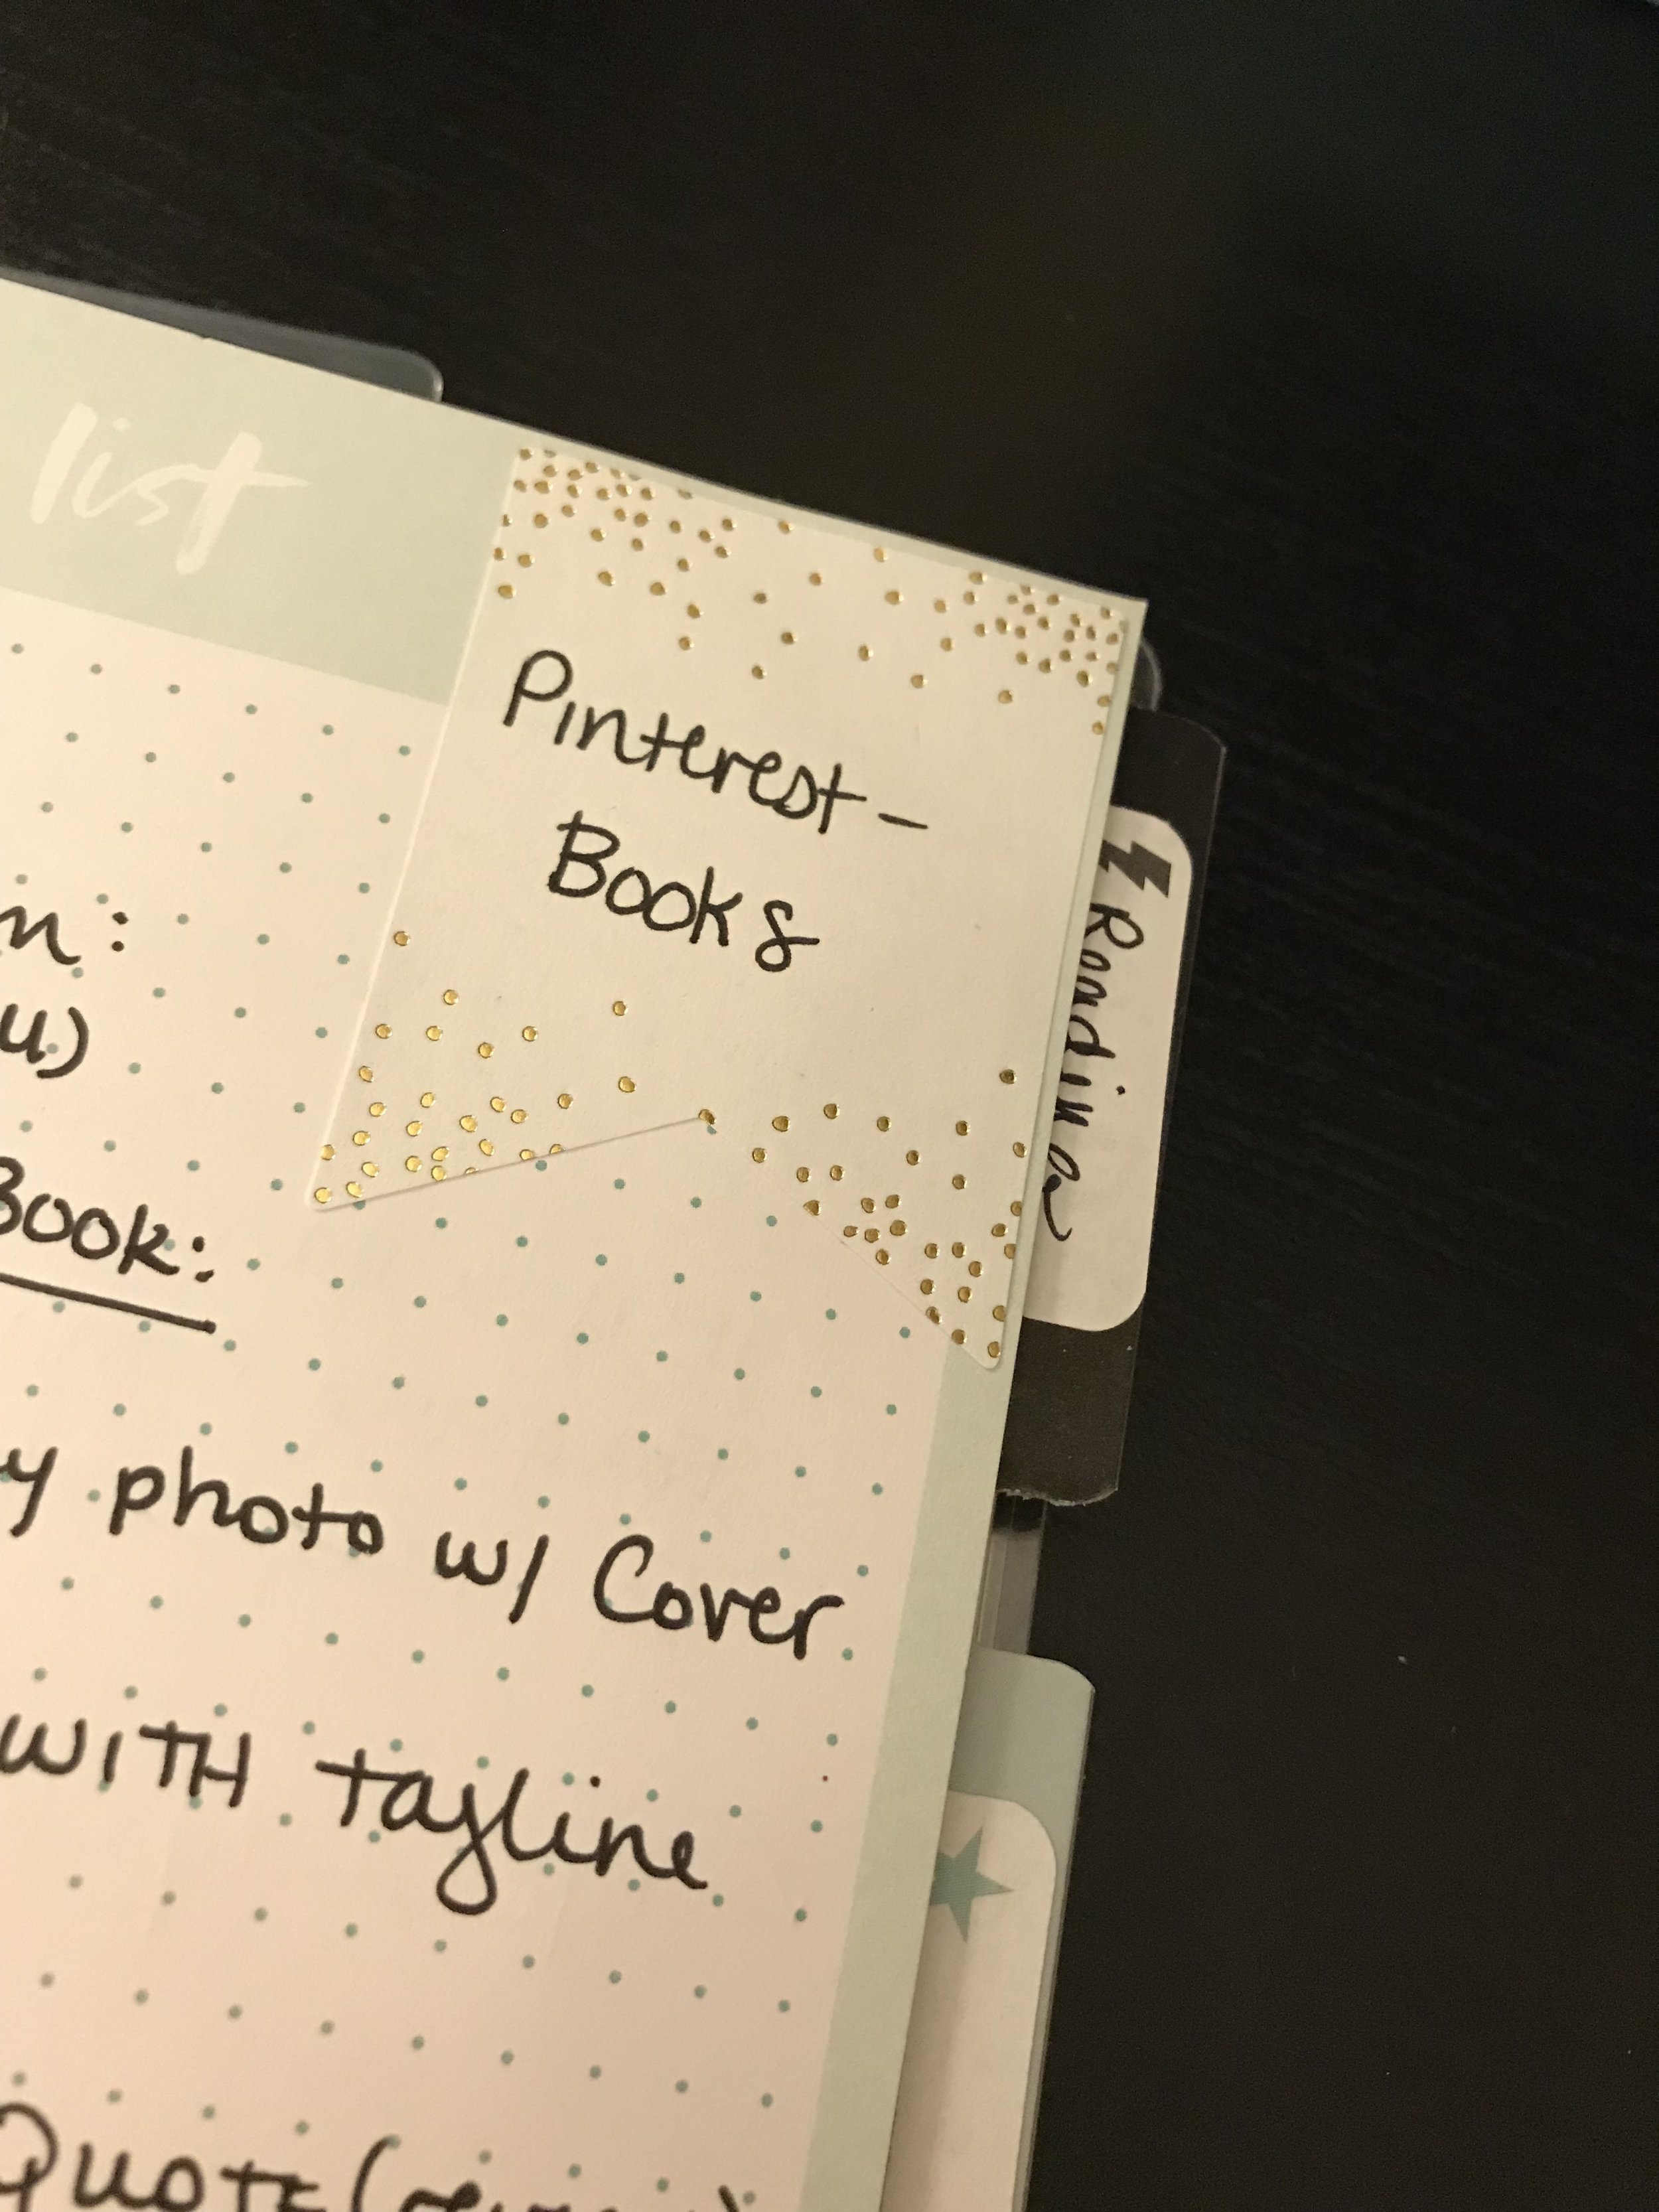 list
Pinterest-
Books
Reading
Book:
photo w/ Cover
WITH tagline
Quote